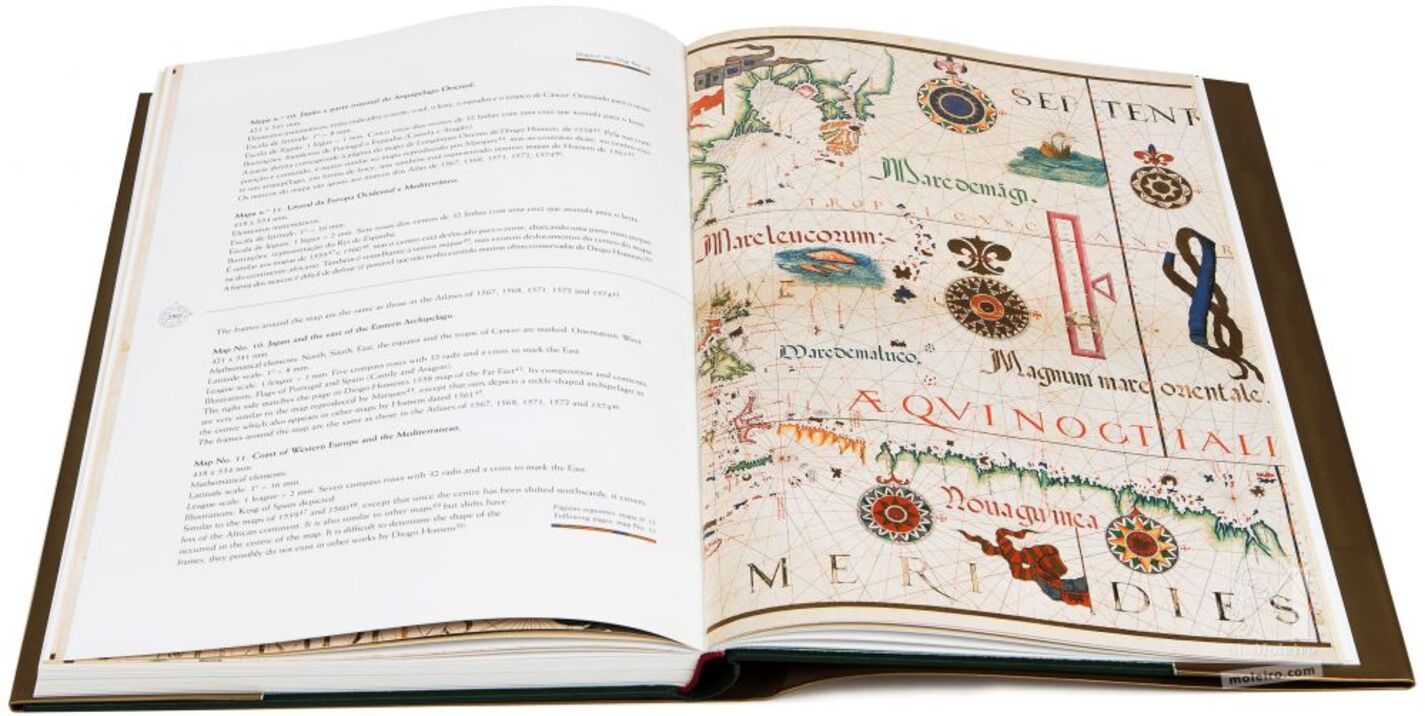 Mapa n.º 10. Japão e parte oriental do Arquipélago Oriental.
421 x 541 mm.
Elementos matemáticos: estão indicados o norte, o sul, o leste, o equador e o trópico de Câncer. Orientado para o oeste.
Escala de latitude: 1º = 8 mm.
Escala de léguas: 1 légua = 1 mm. Cinco rosas dos ventos de 32 linhas com uma cruz que assinala para o leste.
Ilustrações: Bandeiras de Portugal e Espanha (Castela e Aragão).
Os marcos do mapa são iguais aos marcos dos Atlas de 1567, 1568, 1571, 1572, 1574
Mapa n.º 11. Litoral da Europa Ocidental e Mediterrâneo.
418 x 534 mm.
Elementos matemáticos:
Escala de latitude: 1º = 16 mm.
Escala de léguas: 1 légua = 2 mm. Sete rosas-dos-ventos de 32 linhas com uma cruz que assinala para o leste.
Ilustrações: representação do Rei de Espanha.
The frames around the map are the same as those in the Atlases of 1567, 1568, 1571, 1572 and 1574
Map No. 10. Japan and the east of the Eastern Archipelago.
421 x 541 mm
Mathematical elements: North, South, East, the equator and the tropic of Cancer are marked. Orientation: West.
Latitude scale: 1º = 8 mm.
League scale: 1 league = 1 mm. Five compass roses with 32 radii and a cross to mark the East
Illustrations: Flags of Portugal and Spain (Castile and Aragon)
The right side matches the page in Diogo Homem's 1558 map of the Far East. Its composition and contents
are very similar to the map reproduced by Marques, except that ours depicts a sickle-shaped archipelago in
the centre which also appears in other maps by Homem dated 1561
The frames around the map are the same as those in the Atlases of 1567, 1568, 1571, 1572 and 1574
Map No. 11. Coast of Western Europe and the Mediterranean.
418 x 534 mm
Mathematical elements:
Latitude scale: 1º = 16 mm
League scale: 1 league = 2 mm. Seven compass roses with 32 radii and a cross to mark the East
Illustrations: King of Spain depicted
Similar to the maps of 1559 and 1560, except that since the centre has been shifted northwards, it covers
less of the African continent. It is also similar to other maps but shifts have
occurred in the centre of the map. It is difficult to determine the shape of the
frames, they possibly do not exist in other works by Diogo Homem.
Páginas seguintes: mapa nº 11
Following pages: map No. 11
SEPTENT
Mare demāgi.
TROPICVS CANCR
Mare leucorum:~
Mare de maluco.
Magnum mare orientale.
ÆQVINOCTIALI
Noua guinea
MERIDIES
moleiro.com